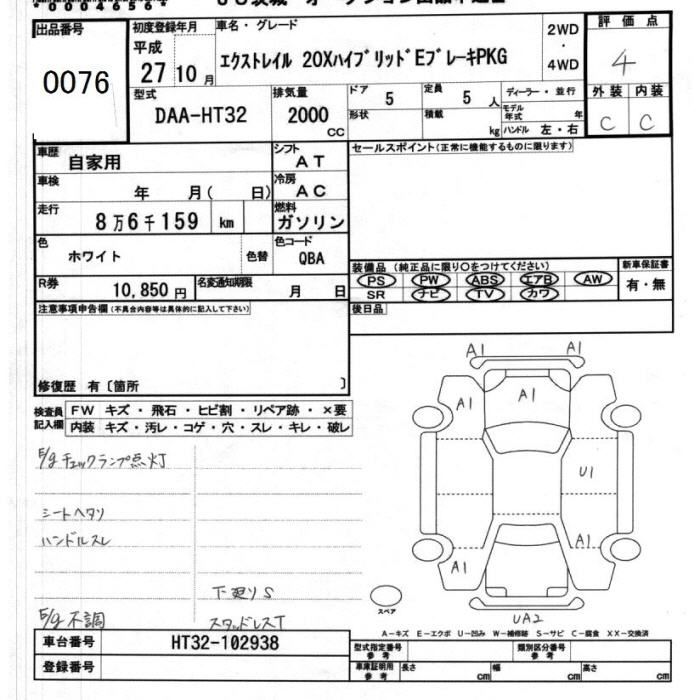 *00046504*
出品番号
0076
初度登録年月
平成
27 10月
車名・グレード
エクストレイル 20XハイブリッドEブレーキPKG
2WD
・
4WD
評価点
4
型式
DAA-HT32
排気量
2000
CC
ドア
5
形状
定員
5 人
積載
kg
ディーラー・並行
モデル年式 年
ハンドル 左・右
外装 内装
C C
車歴
自家用
シフト
AT
車検
年 月( 日)
冷房
AC
走行
8万6千159 km
燃料
ガソリン
色
ホワイト
色替
色コード
QBA
R券
10,850円
名変通知期限
月 日
セールスポイント(正常に機能するものに限ります)
装備品(純正品に限り○をつけてください)
PS PW ABS エアB AW
SR ナビ TV カワ
新車保証書
有・無
後日品
注意事項申告欄(不具合内容等は具体的に記入して下さい)
修復歴 有〔箇所 〕
検査員記入欄
FW キズ・飛石・ヒビ割・リペア跡・×要
内装 キズ・汚レ・コゲ・穴・スレ・キレ・破レ
E/gチェックランプ点灯
シートヘタリ
ハンドルスレ
下廻りS
E/g不調
スタッドレスT
A1
A1
A1
A1
U1
A1
A1
UA2
スペア
A-キズ E-エクボ U-凹み W-補修跡 S-サビ C-腐食 XX-交換済
車台番号
HT32-102938
登録番号
型式指定番号
参考
類別区分番号
参考
車庫証明用
参考
長さ cm
幅 cm
高さ cm